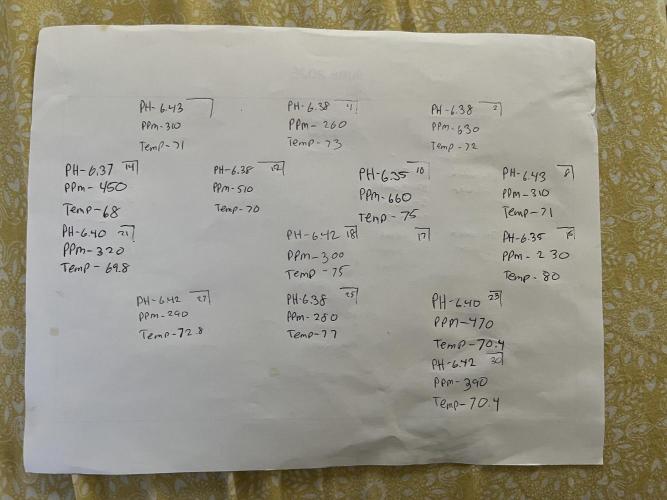 PH-6.43
PPm-310
Temp-71
PH-6.38 4
PPm-260
Temp-73
PH-6.38 2
PPm-630
Temp-72
PH-6.37 14
PPm-450
Temp-68
PH-6.38 12
PPm-510
Temp-70
PH-6.35 10
PPm-660
Temp-75
PH-6.43 8
PPm-310
Temp-71
PH-6.40 21
PPm-320
Temp-69.8
PH-6.42 18
PPm-300
Temp-75
17
PH-6.35
PPm-230
Temp-80
PH-6.42 27
PPm-290
Temp-72.8
PH-6.38 25
PPm-280
Temp-77
PH-6.40 23
PPM-470
Temp-70.4
PH-6.42 30
PPm-390
Temp-70.4